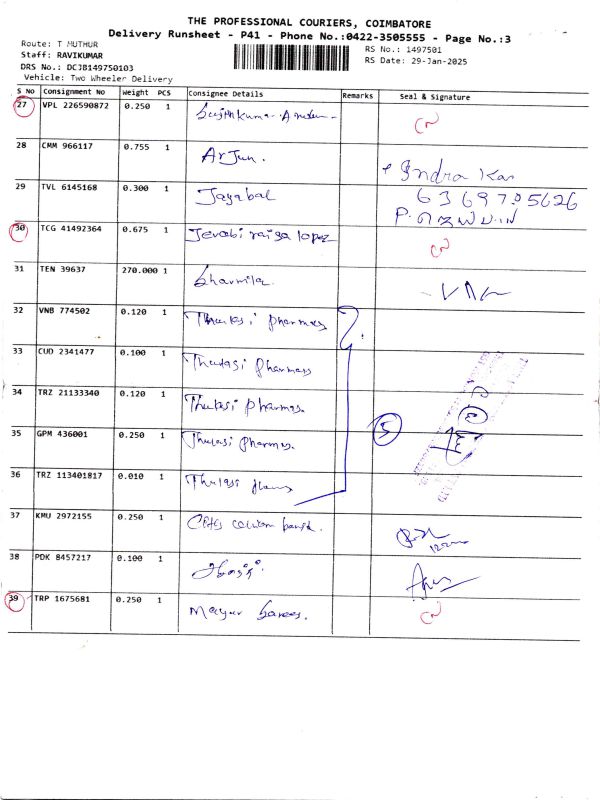 THE PROFESSIONAL COURIERS, COIMBATORE
Delivery Runsheet - P41 - Phone No.:0422-3505555 - Page No.:3
Route: T MUTHUR
RS No.: 1497501
Staff: RAVIKUMAR
RS Date: 29-Jan-2025
DRS No.: DCJ8149750103
Vehicle: Two Wheeler Delivery
S No Consignment No Weight PCS Consignee Details Remarks Seal & Signature
27 VPL 226590872 0.250 1
28 CMM 966117 0.755 1 Arjun.
Indra Kar
29 TVL 6145168 0.300 1 Jayabal
6369705626
30 TCG 41492364 0.675 1 lopez
31 TEN 39637 270.000 1 Sharmila
32 VNB 774502 0.120 1 Thulasi pharmacy
33 CUD 2341477 0.100 1 Thulasi pharmacy
34 TRZ 21133340 0.120 1 Thulasi pharmacy
35 GPM 436001 0.250 1 Thulasi pharmacy 5
36 TRZ 113401817 0.010 1 Thulasi
37 KMU 2972155 0.250 1
38 PDK 8457217 0.100 1
39 TRP 1675681 0.250 1